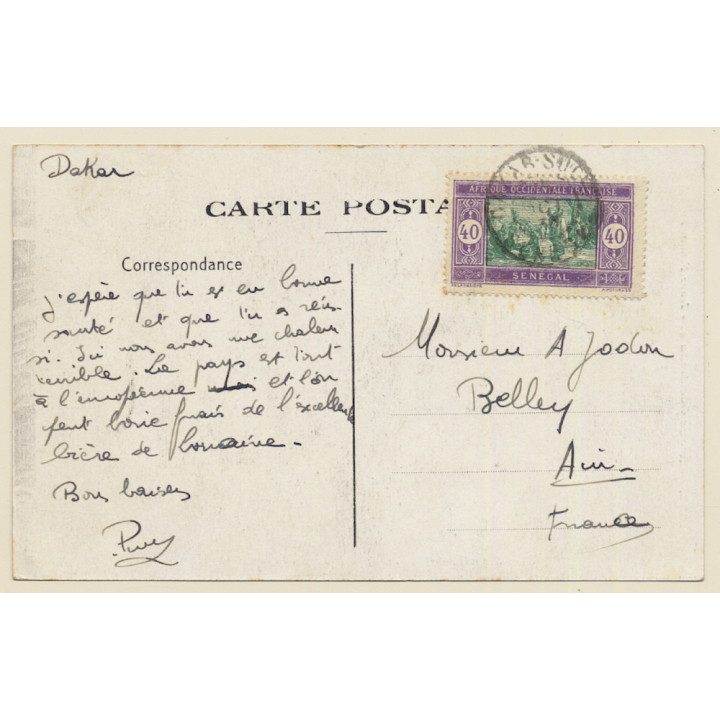 Dakar
CARTE POSTA
AFRIQUE OCCIDENTALE FRANÇAISE
40
40
SÉNÉGAL
Correspondance
j'espère que tu es en bonne
santé et que tu as réus-
si. Ici nous avons une chaleur
terrible. Le pays est tout
à l'européenne et l'on
peut boire frais de l'excellente
bière de Lorraine -
Bons baisers
Monsieur A Jodon
Belley
Ain -
France